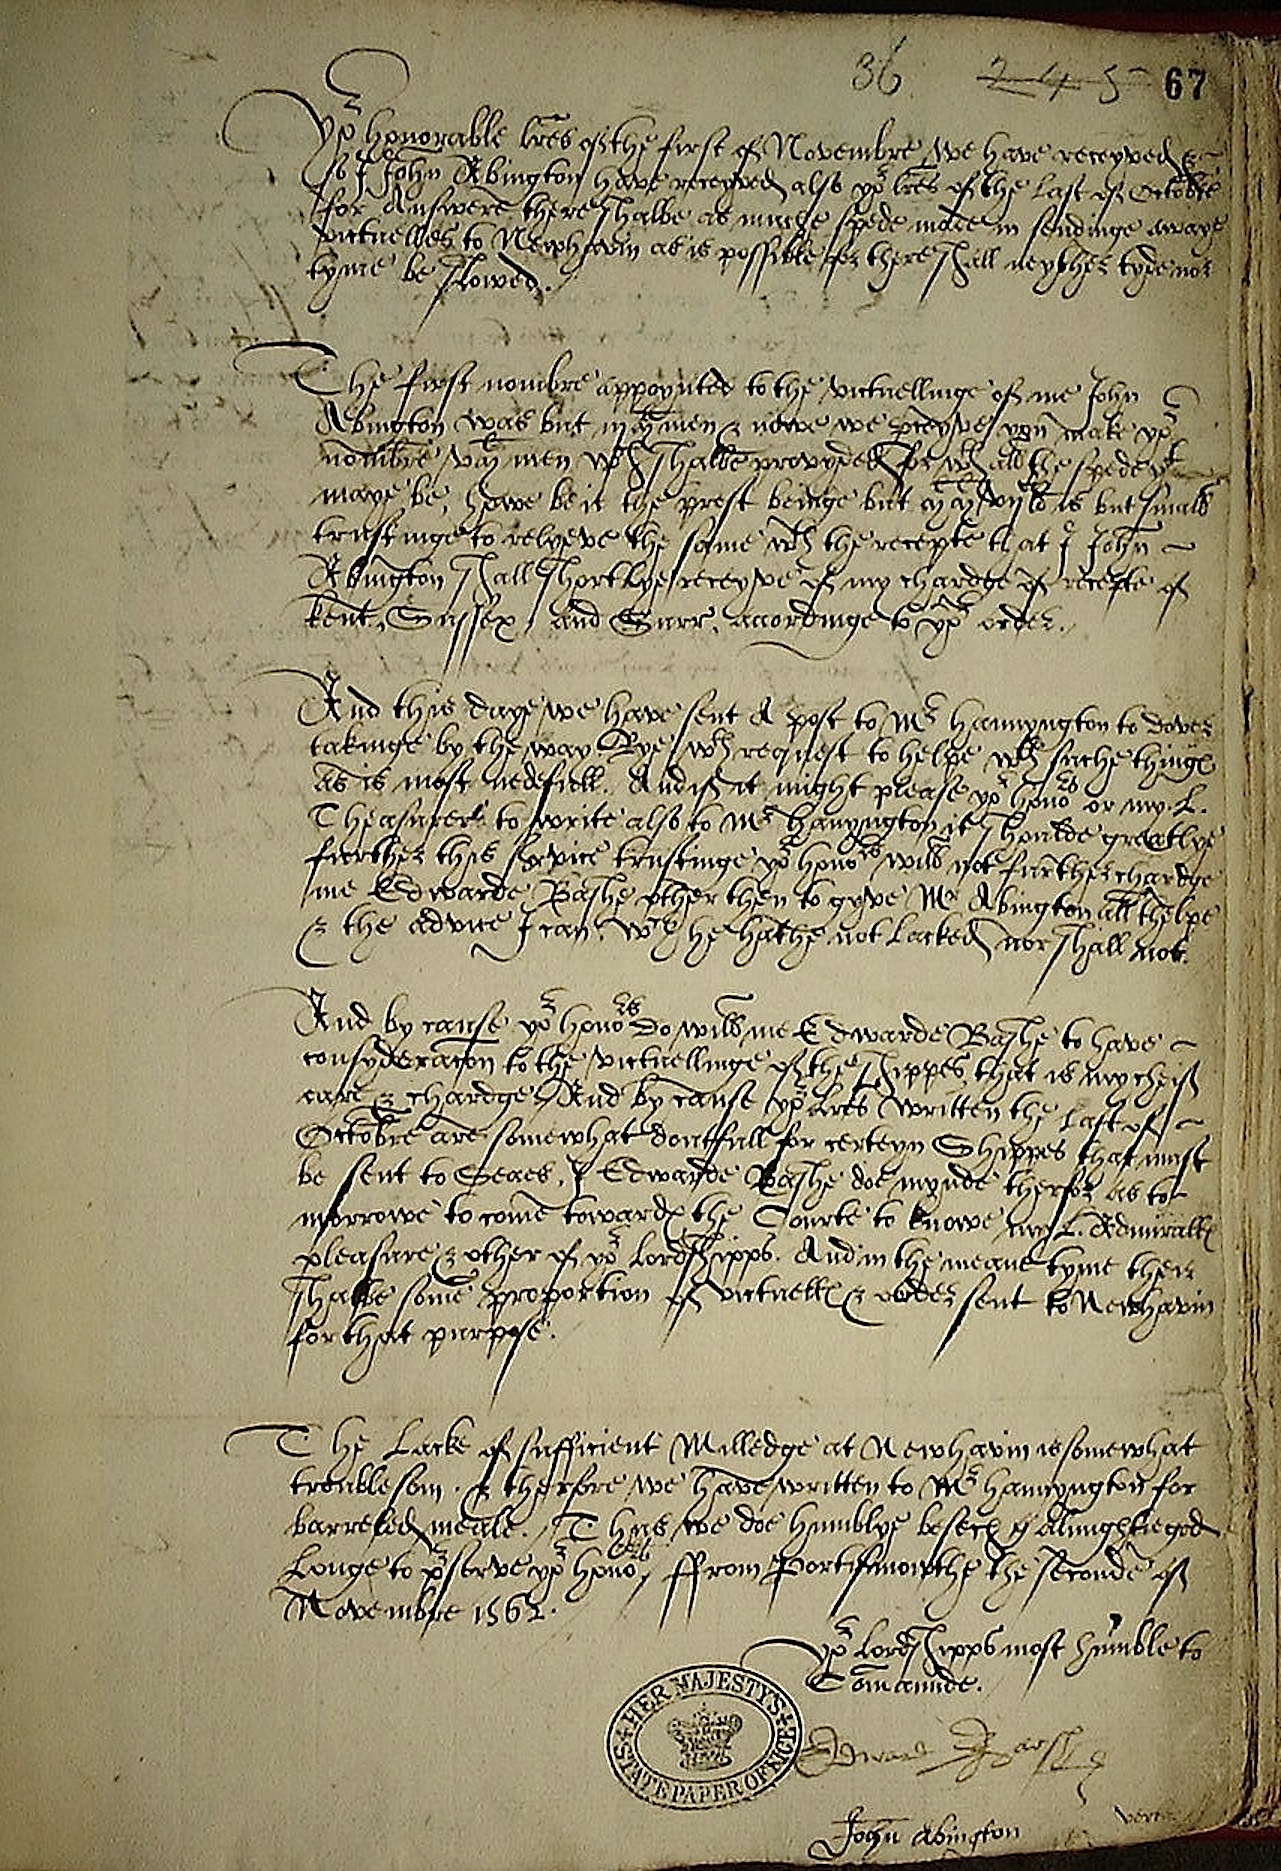 36 245 67
Yor honorable lres of the first of Novembre we have receyved &
so I John Abington have receyved also yor lres of the last of Octobre
for Answere there shalbe as muche spede made in sendinge awaye
victuelles to Newhavin as is possible for there shall neyther tyde nor
tyme be slowed.
The first nombre appoynted to the victuellinge of me John
Abington was but men & nowe we pceyve you make yor
nombre men wch shalbe provyded for wth all the spede yt
maye be, howe be it the prest beinge but is but small
trustinge to relyeve the same wth the recepte that I John
Abington shall shortlye receyve of my chardge of recepte of
Kent, Sussex, and Surr, accordinge to yor order.
And this daye we have sent A post to Mr hamyngton to dover
takinge by the way Rye wth request to helpe wth suche things
as is most nedefull. And if it might please yor honors or my. L.
Theasurer to write also to Mr hamyngton it shoulde greatlye
further this service trustinge yor honors will not further chardge
me Edwarde Bashe other then to gyve Mr Abington all thelpe
& the advice I can, wch he hathe not lacked nor shall not.
And by cause yor honors do will me Edwarde Bashe to have
consyderacon to the victuellinge of the shippes, that is my chief
care & chardge, And by cause yor lres written the last of
Octobre are somewhat doutfull for certeyn Shippes that must
be sent to Seaes, I Edwarde Bashe doe mynde therfor as to
morrowe to come towards the Courte to knowe my L. Admiralls
pleasure & other of yor Lordshipps. And in the meane tyme their
shalbe some proportion of victuells & order sent to Newhavin
for that purpose.
The Lacke of sufficient Milledge at Newhavin is somewhat
troublesom. & therfore we have written to Mr hamyngton for
barreled meale. Thus we doe humblye besech thalmightie god
Longe to pserve yor honors, ffrom Portesmowthe the seconde of
Novembre 1562.
Yor Lordshipps most humble to
Comaunde.
HER MAJESTY'S
STATE PAPER OFFICE
Edward Bashe
John Abington